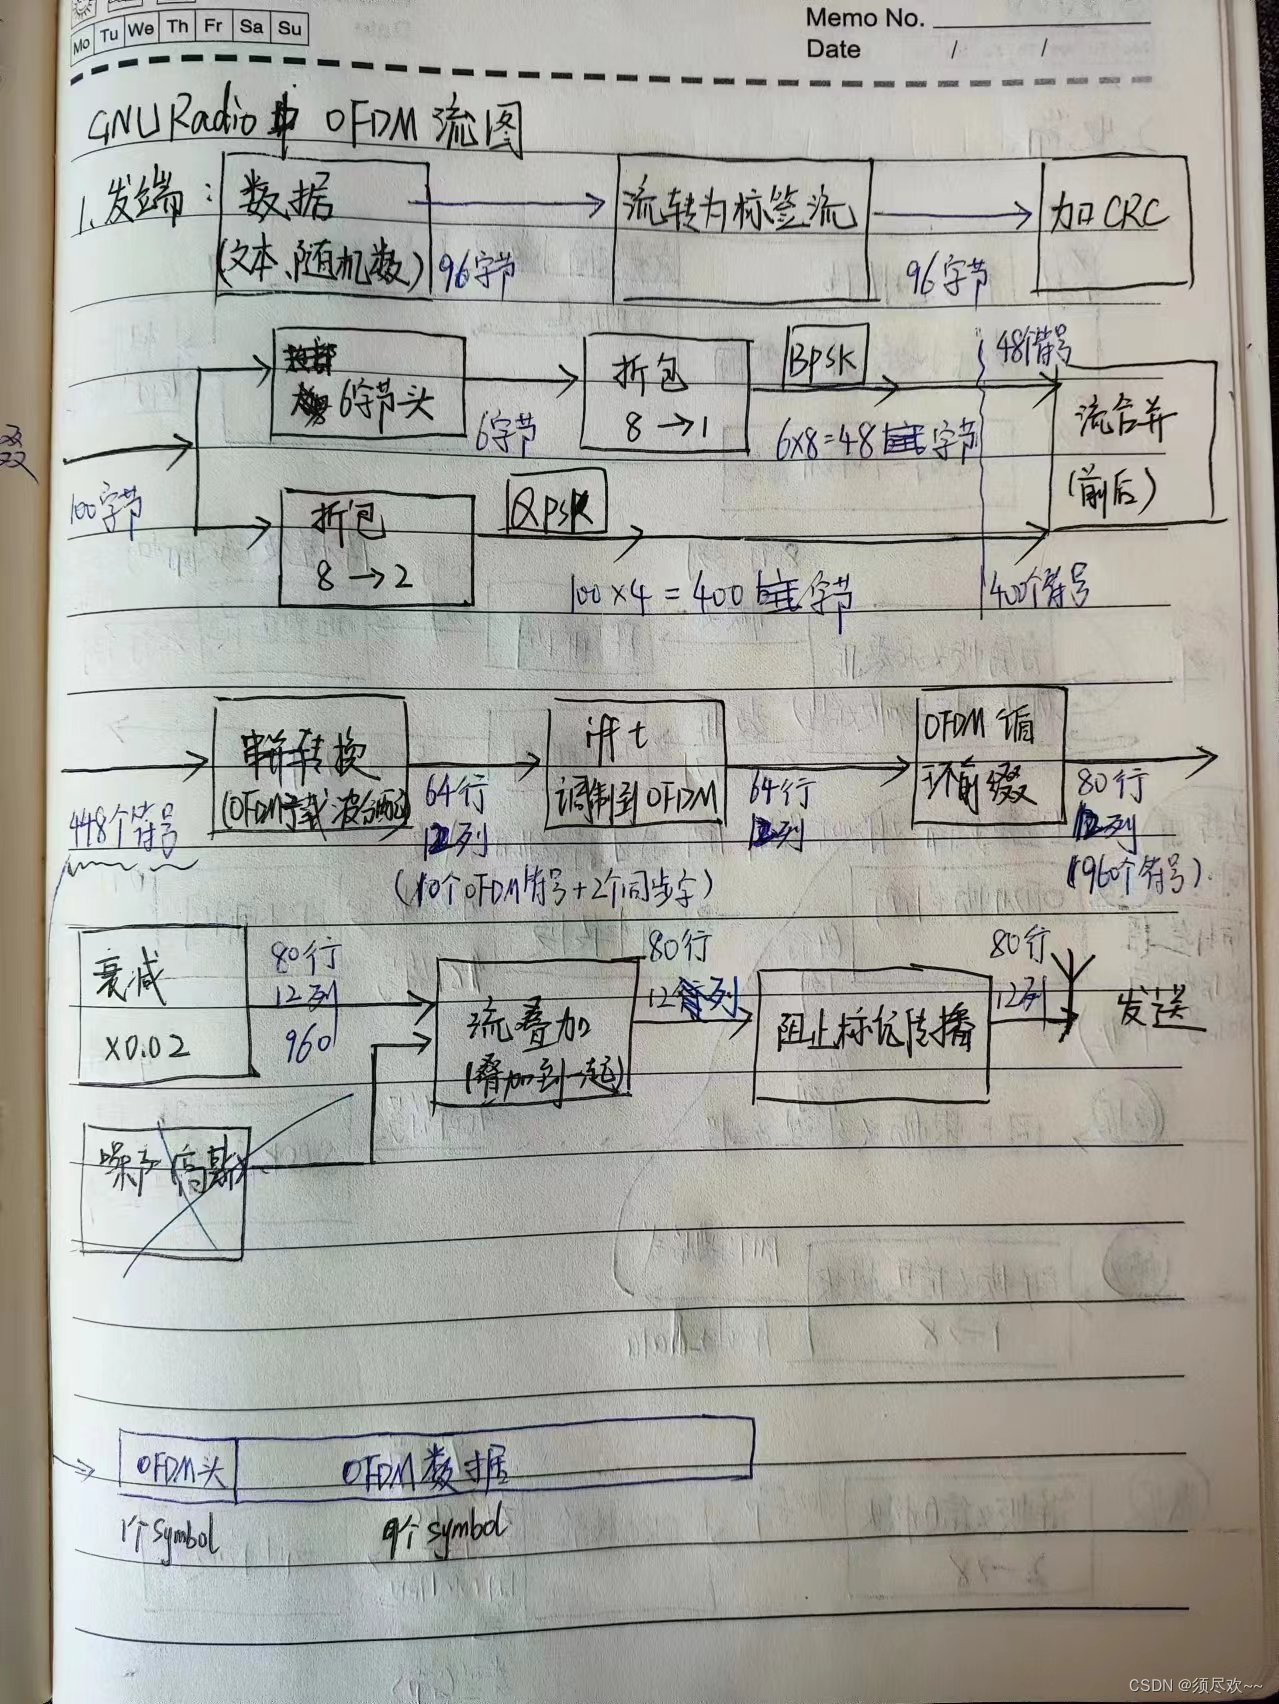 Mo Tu We Th Fr Sa Su
Memo No.
Date / /
GNU Radio中 OFDM 流图
1.发端:
数据
(文本、随机数)
96字节
流转为标签流
96字节
加CRC
100字节
6字节头
6字节
拆包
8→1
BPSK
6×8=48字节
48个符号
流合并
(前后)
拆包
8→2
QPSK
100×4=400字节
400个符号
448个符号
串并转换
(OFDM子载波分配)
64行
12列
(10个OFDM符号+2个同步字)
ifft
调制到OFDM
64行
12列
OFDM 循
环前缀
80行
12列
(960个符号)
衰减
×0.02
80行
12列
960
流叠加
(叠加到一起)
80行
12列
阻止标签传播
80行
12列
发送
噪声(高斯)
OFDM头
OFDM数据
1个symbol
9个symbol
CSDN @须尽欢~~